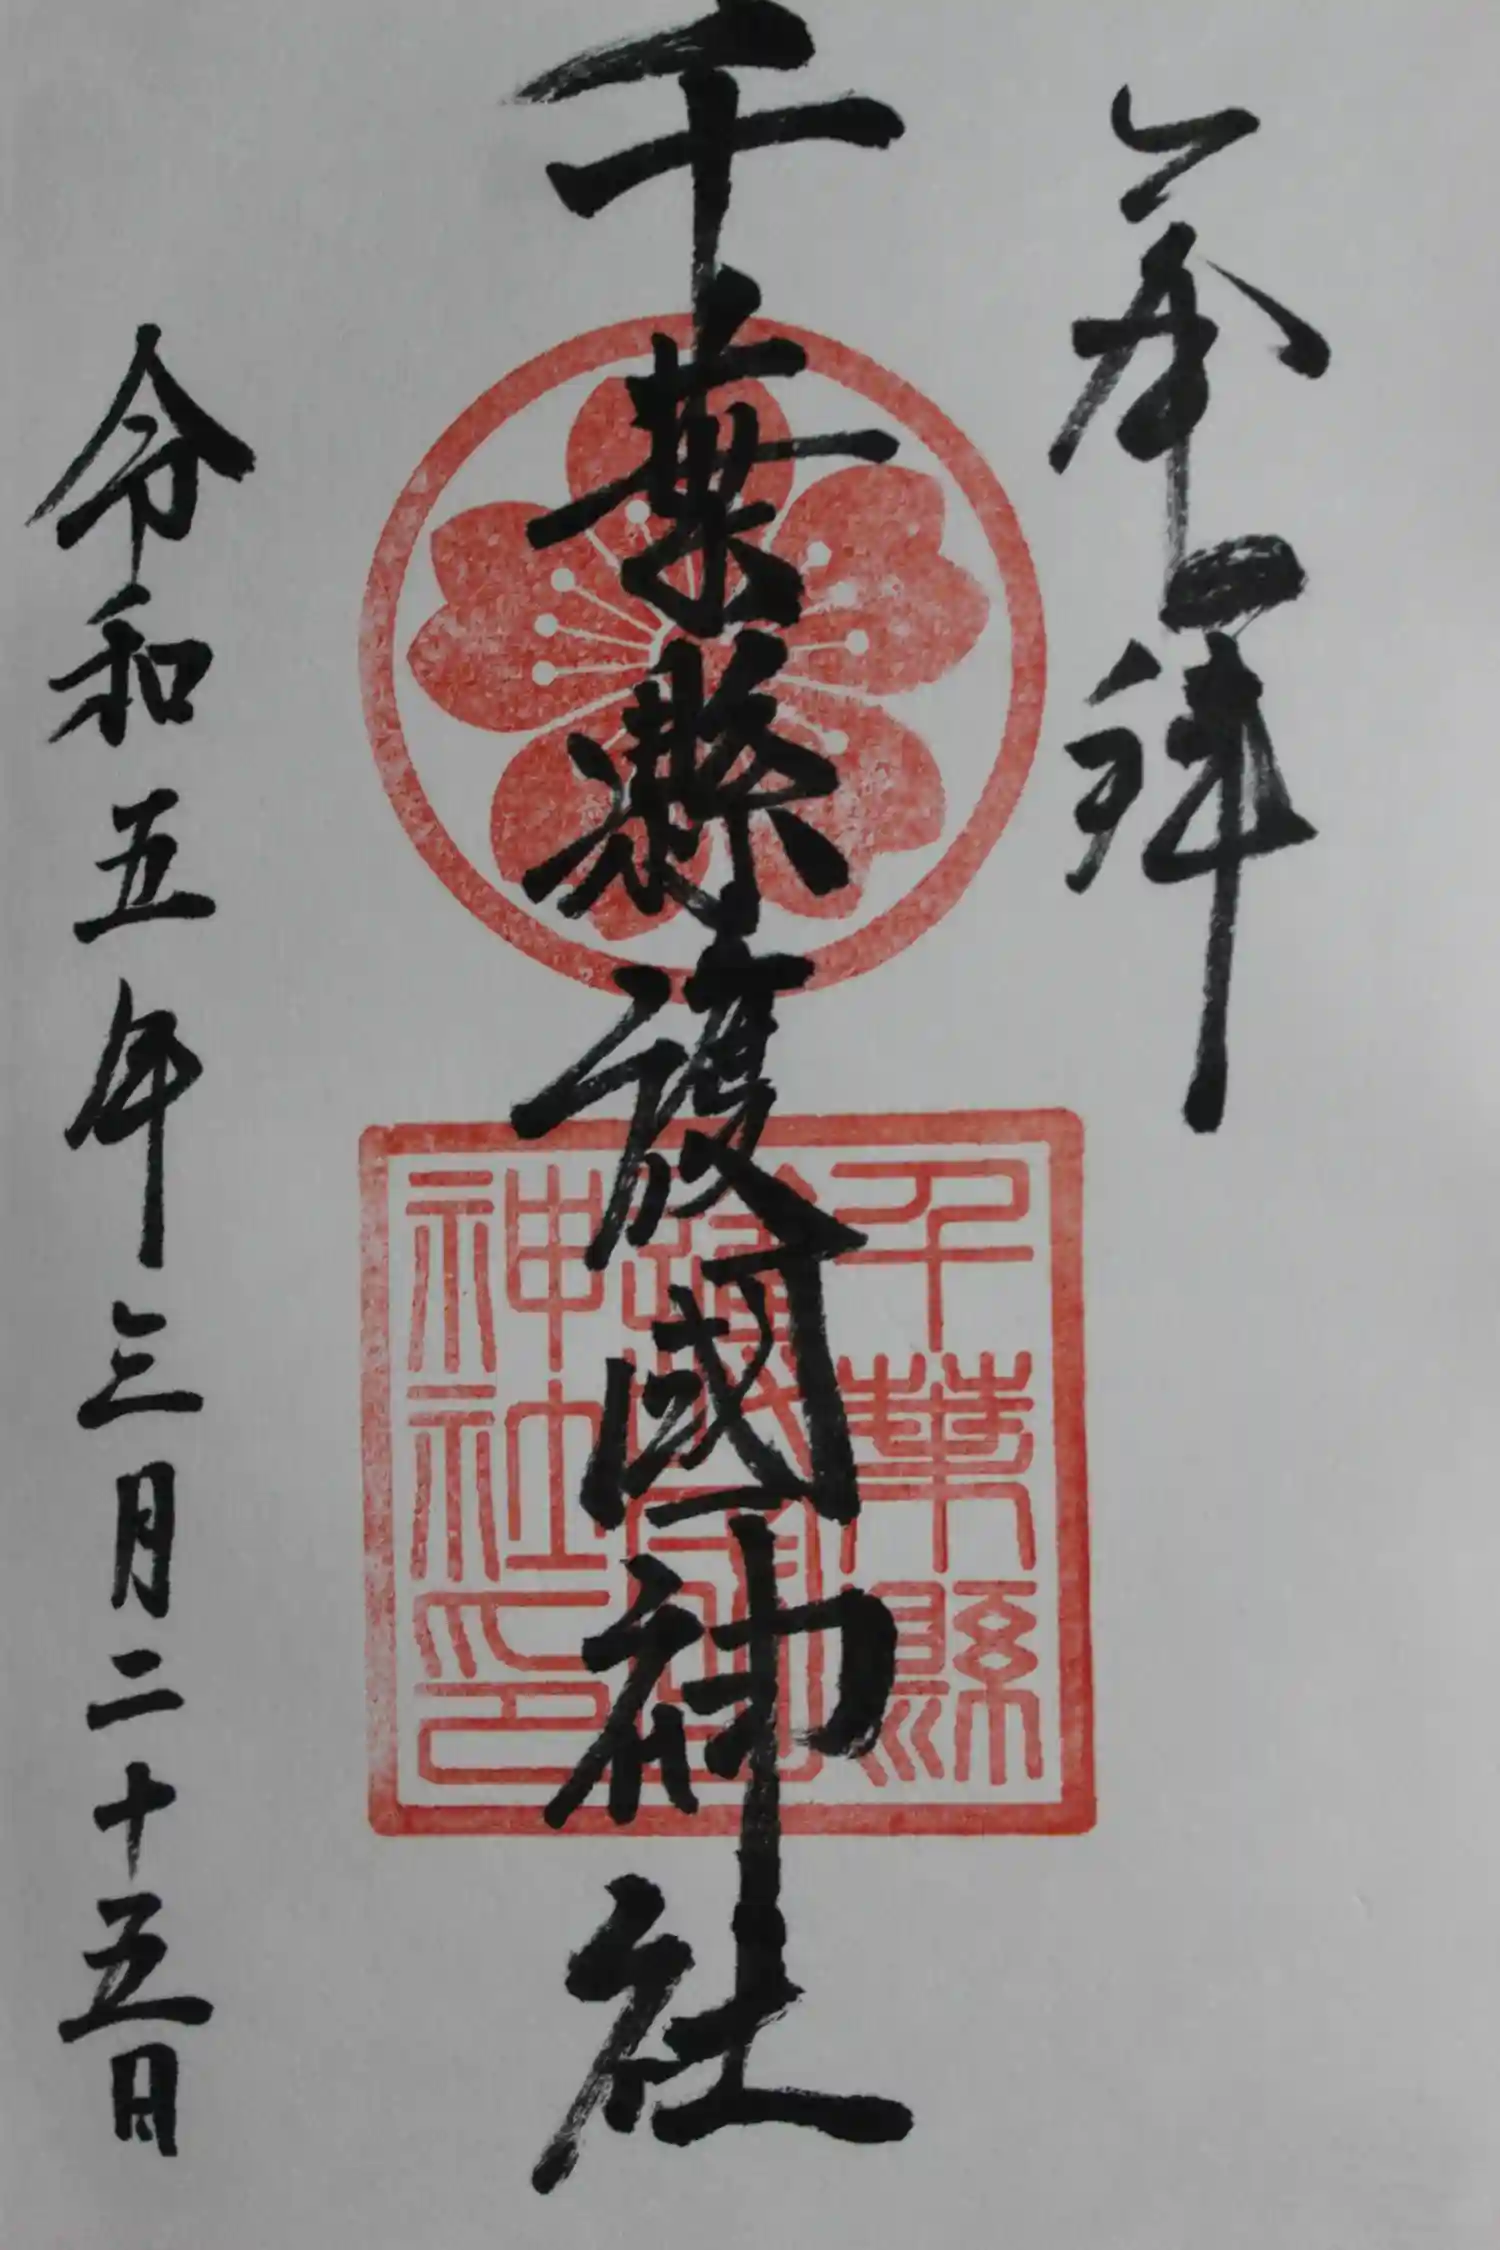 奉拝
千葉縣護國神社
千葉縣
護國
神社印
令和五年三月二十五日